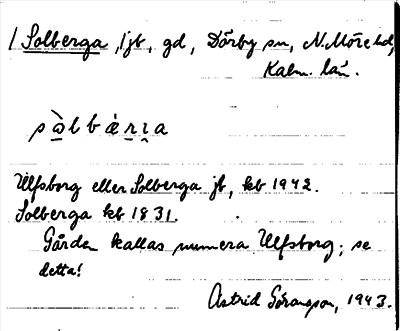 1 Solberga, 1 jb, gd, Dörby sn, N. Möre hd,
Kalm. län.
sòlbærıa
Ulfsborg eller Solberga jb, kb 1942.
Solberga kb 1831.
Gården kallas numera Ulfsborg; se
detta!
Astrid Göransson, 1943.